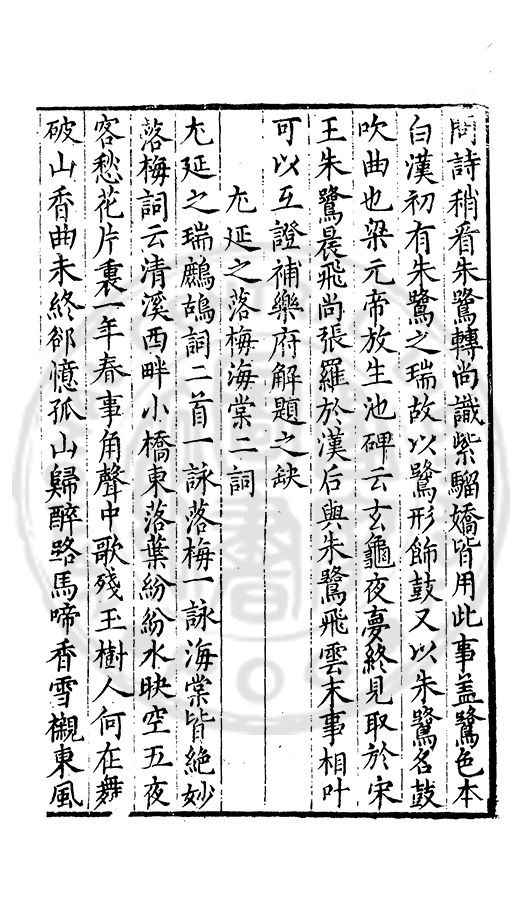 問詩稍看朱鷺轉尚識紫騮嬌皆用此事盖鷺色本
白漢初有朱鷺之瑞故以鷺形飾鼓又以朱鷺名鼓
吹曲也梁元帝放生池碑云玄龜夜夢終見取於宋
王朱鷺晨飛尚張羅於漢后與朱鷺飛雲末事相叶
可以互證補樂府解題之缺
尢延之落梅海棠二詞
尢延之瑞鷓鴣詞二首一詠落梅一詠海棠皆絶妙
落梅詞云清溪西畔小橋東落葉紛紛水映空五夜
客愁花片裏一年春事角聲中歌殘玉樹人何在舞
破山香曲未終郤憶孤山歸醉路馬啼香雪櫬東風